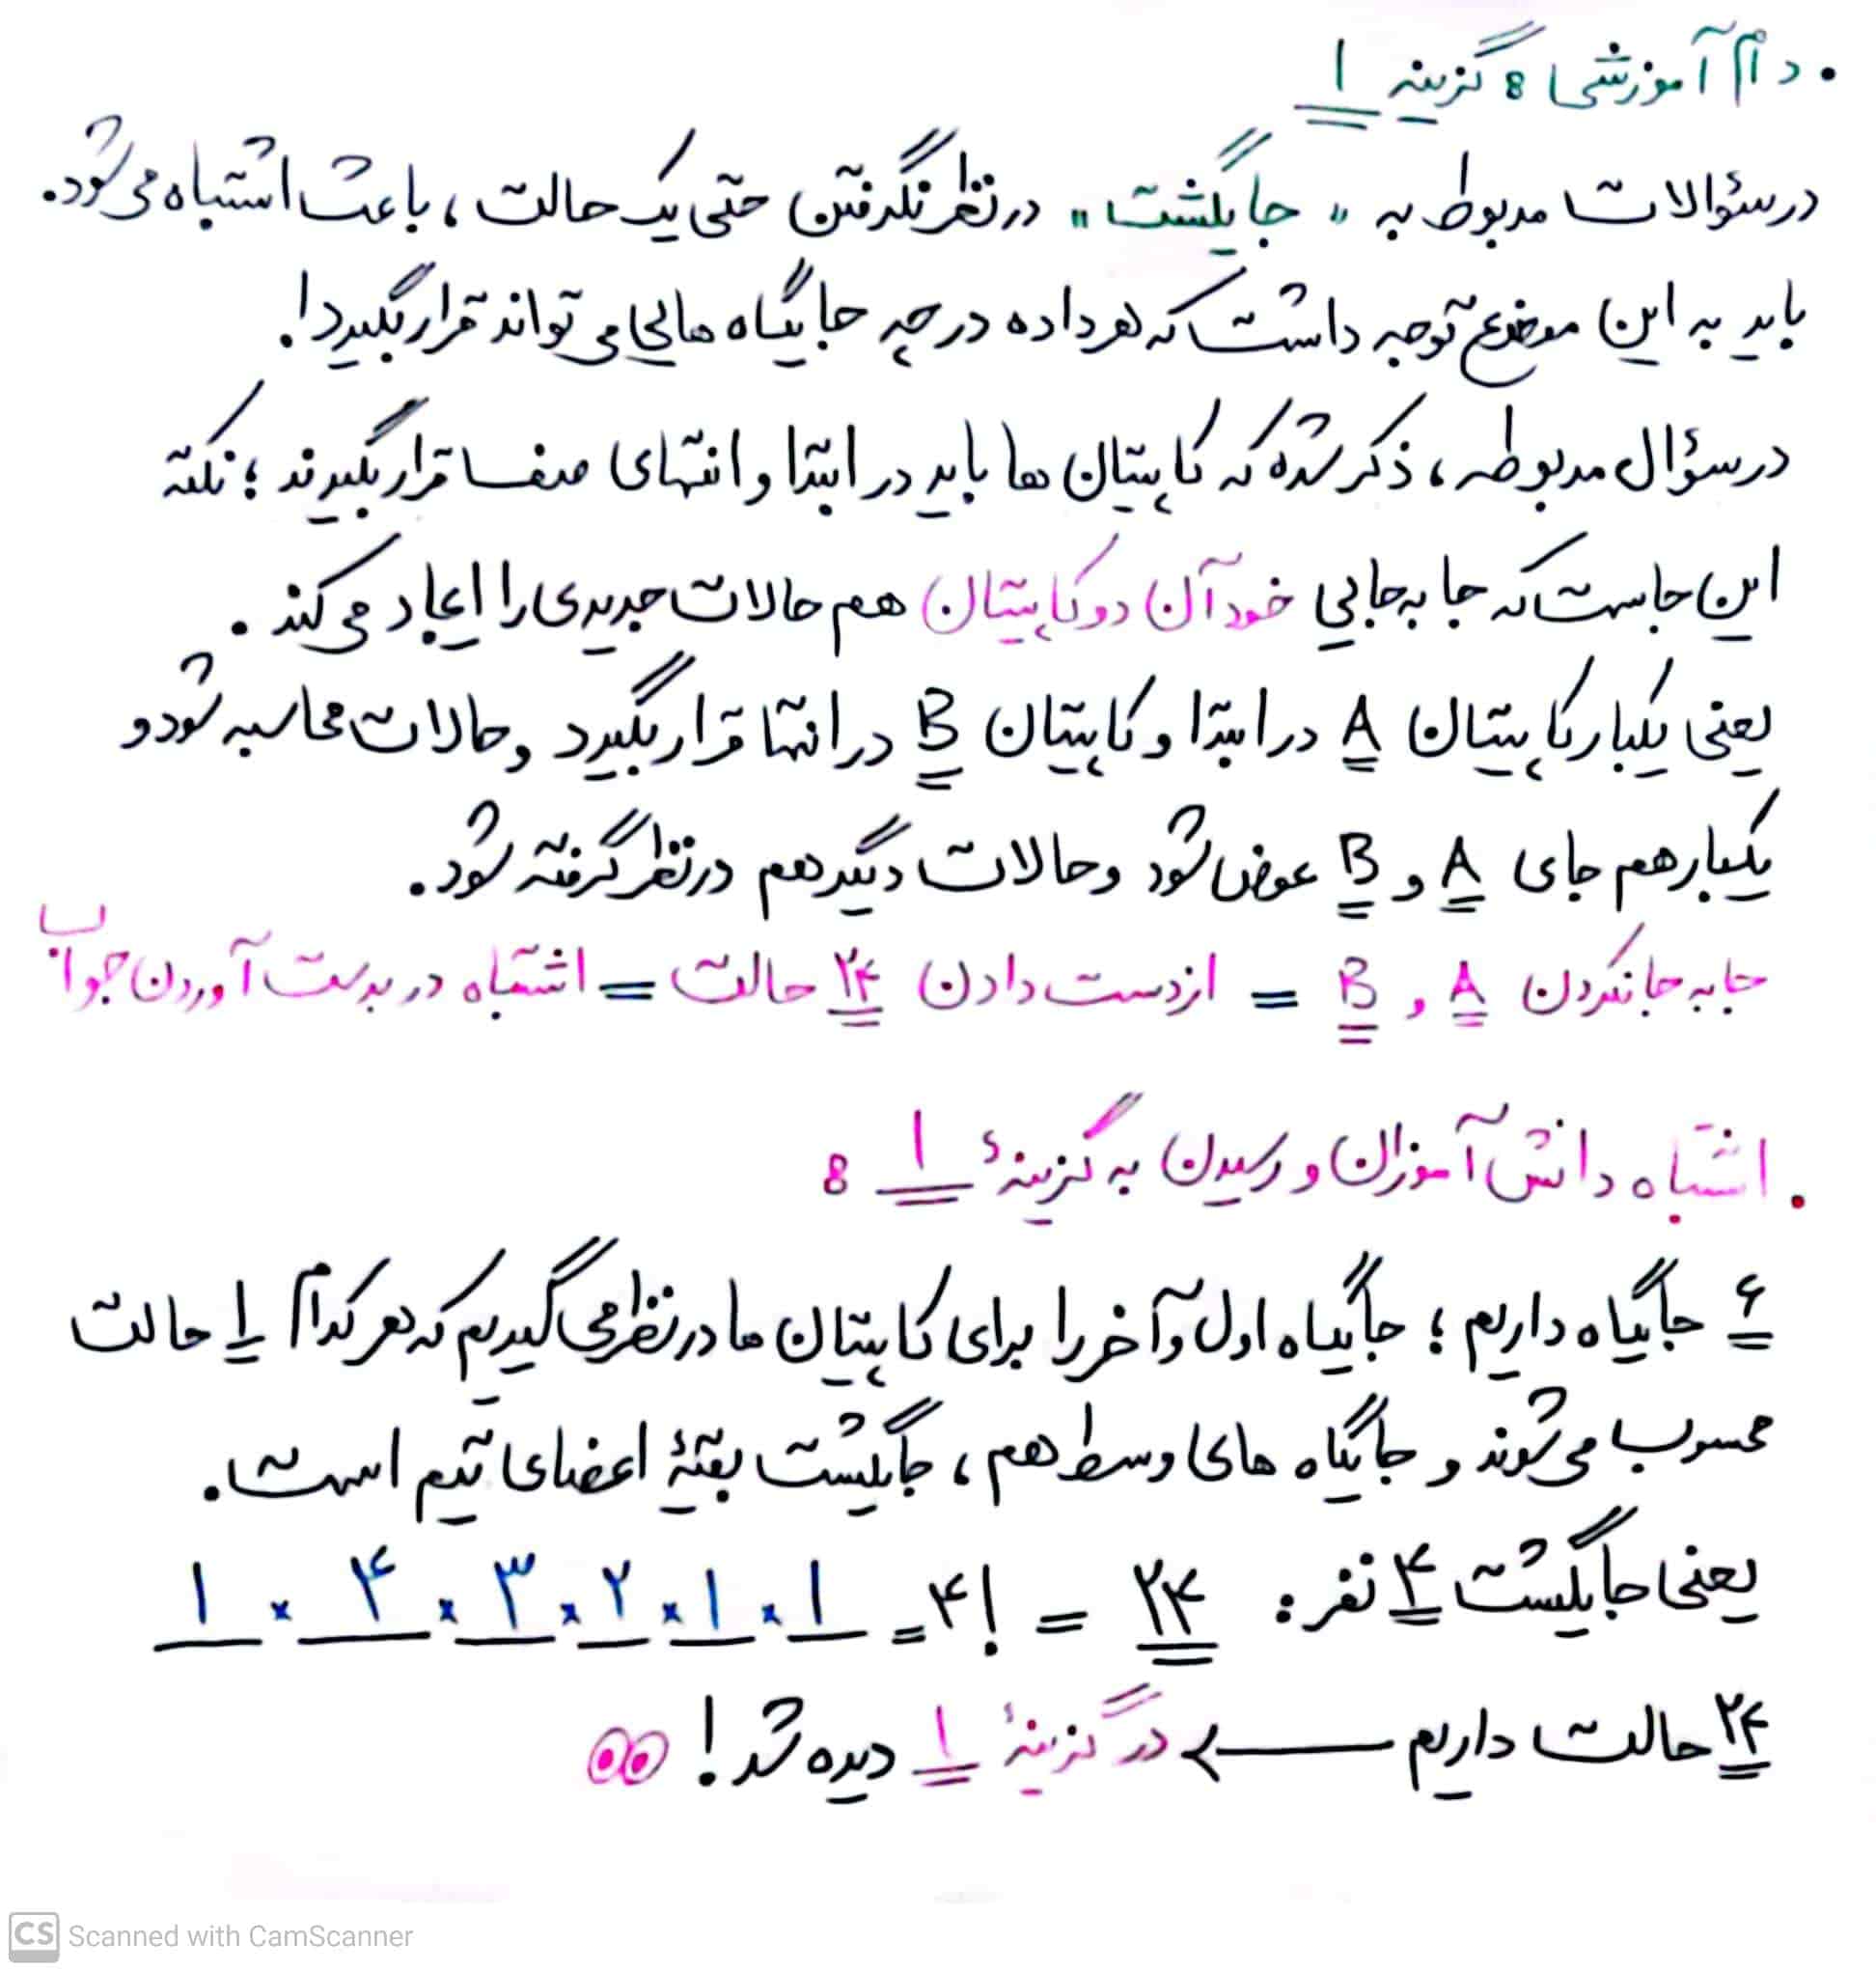 • دام آموزشی : گزینه ۱
در سؤالات مربوط به "جایگشت" در نظر نگرفتن حتی یک حالت، باعث اشتباه می‌شود.
باید به این موضوع توجه داشت که هر داده در چه جایگاه هایی می تواند قرار بگیرد!
در سؤال مربوطه، ذکر شده که کاپیتان ها باید در ابتدا و انتهای صف قرار بگیرند؛ نکته
این جاست که جا به جایی خود آن دو کاپیتان هم حالات جدیدی را ایجاد می کند.
یعنی یکبار کاپیتان A در ابتدا و کاپیتان B در انتها قرار بگیرد و حالات محاسبه شود و
یکبار هم جای A و B عوض شود و حالات دیگر هم در نظر گرفته شود.
جا به جا نکردن A و B = از دست دادن ۲۴ حالت = اشتباه در بدست آوردن جواب
• اشتباه دانش آموزان و رسیدن به گزینهٔ ۱ :
۶ جایگاه داریم؛ جایگاه اول و آخر را برای کاپیتان ها در نظر می گیریم که هر کدام ۱ حالت
محسوب می شوند و جایگاه های وسط هم، جایگشت بقیهٔ اعضای تیم است.
یعنی جایگشت ۴ نفر: ۱ × ۴ × ۳ × ۲ × ۱ × ۱ = ۴! = ۲۴
۲۴ حالت داریم ← در گزینهٔ ۱ دیده شد!
CS Scanned with CamScanner